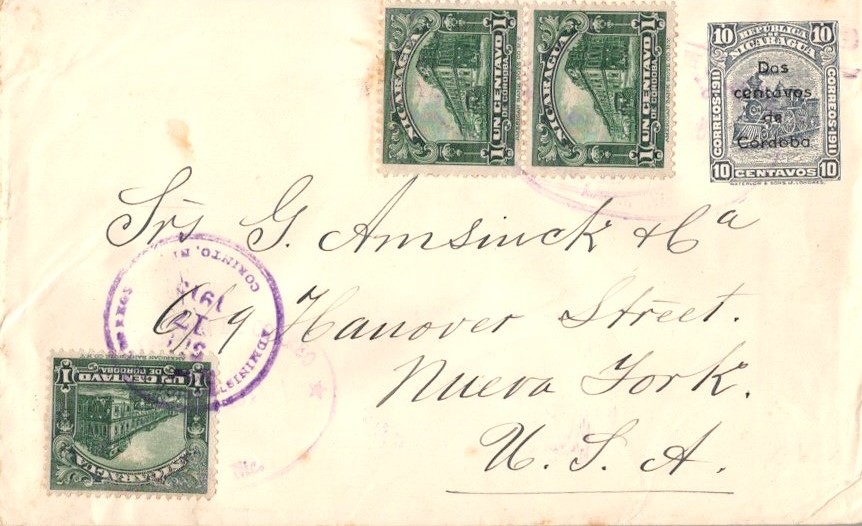 NICARAGUA
UN CENTAVO
DE CORDOBA
1 1
NICARAGUA
UN CENTAVO
DE CORDOBA
1 1
10 REPUBLICA DE NICARAGUA 10
CORREOS-1911
CORREOS-1911
Dos
centavos
de
Cordoba
10 CENTAVOS 10
WATERLOW & SONS LD, LONDRES.
Srs G. Amsinck & Ca
6/9 Hanover Street.
Nueva York.
U. S. A.
CORINTO, NI
17
NICARAGUA
UN CENTAVO
DE CORDOBA
1 1
AMERICAN BANK NOTE CO. N.Y.
Nic.